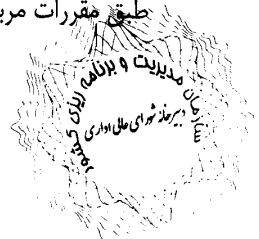 طبق مقررات مر
سازمان مدیریت و برنامه ریزی کشور
دبیرخانه شورای عالی اداری